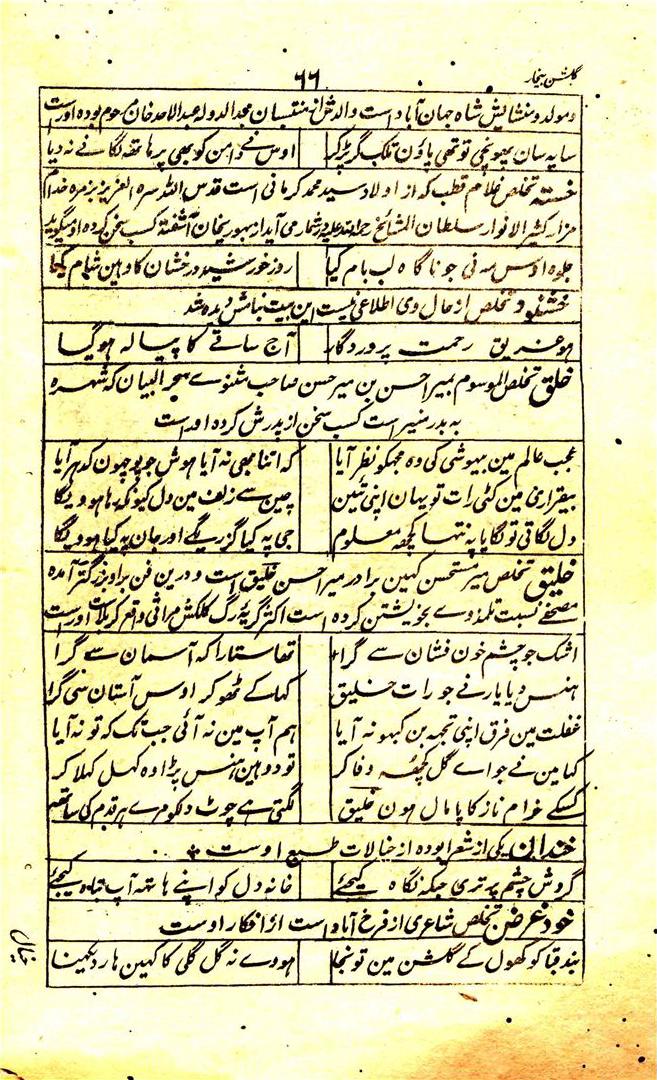 گلشن بیخار
۶۶
و مولد و منشایش شاہ جہان آباد است والدش از منتسبان مجد الدولہ عبد الاحد خان مرحوم بودہ اوراست
سایہ سان پہونچی تو تھی پاؤن تلک گر پڑ کر | اوس نے دامن کو بھی پر ہاتھ لگانے نہ دیا
خستہ تخلص غلام قطب کہ از اولاد سید محمد کرمانی است قدس اللہ سرہ العزیز بزمرہ خدام
مزار کثیر الانوار سلطان المشائخ در شمار می آید از کسب سخن کردہ او گوید
جلوہ اوس سے نی جو ناگاہ لب بام کیا | روز خورشید درخشان کا وہین شام کیا
خشنود تخلص از حال وی اطلاعی نیست این بیت بنامش دیدہ شد
ہو غریق رحمت پروردگار | آج ساقے کا پیالہ ہوگیا
خلق تخلص الموسوم بمیر احسن بن میر حسن صاحب مثنوے سحر البیان کہ شہرہ
بہ بدر منیر است کسب سخن از پدرش کردہ اوراست
عجب عالم مین بیہوشی کی وہ مجہکو نظر آیا | کہ اتنا بھی نہ آیا ہوش جو پوچہون کدہر آیا
بیقراری مین کٹی رات تو یہان اپنی تئین | چین سے زلف مین دل کیونکہ رہا ہوویگا
دل لگاتی تو لگایا پہ نتہا کچہہ معلوم | جی پہ کیا گزریگے اور جان پہ کیا ہوویگا
خلیق تخلص میر مستحسن کہین برادر میر احسن خلیق است و درین فن برادر بزرگتر آمدہ
مصحفے نسبت تلمذ وے بخویشتن کردہ است اکثر گریہ رگ کلکش مراثی واقعہ کربلات اوراست
اشک جو چشم خون فشان سے گرا | تھا ستارا کہ آسمان سے گرا
ہنس دیا یار نے جو رات خلیق | کہا کے ٹھوکر اوس آستان سی گرا
غفلت مین فرق اپنی تجہہ بن کبہو نہ آیا | ہم آپ مین نہ آئی جب تک کہ تو نہ آیا
کہا مین نے جو اے گل کچہہ وفا کر | تو دوہین ہنس پڑا وہ کہل کہلا کر
کسکے خرام ناز کا پامال ہون خلیق | لگتی ہے چوٹ دلکو مرے ہر قدم کی ساتھہ
خندان یکی از شعرا بودہ از خیالات طبع اوست
گردش چشم پر تری جبکہ نگاہ کیجئے | خانہ دل کو اپنے ہاتھہ آپ تباہ کیجئے
خود غرض تخلص شاعری از فرخ آباد است از افکار اوست
بند قبا کو کھول کے گلشن مین تو نجا | ہووے نہ گل گلی کا کہین ہار دیکہنا
خیال